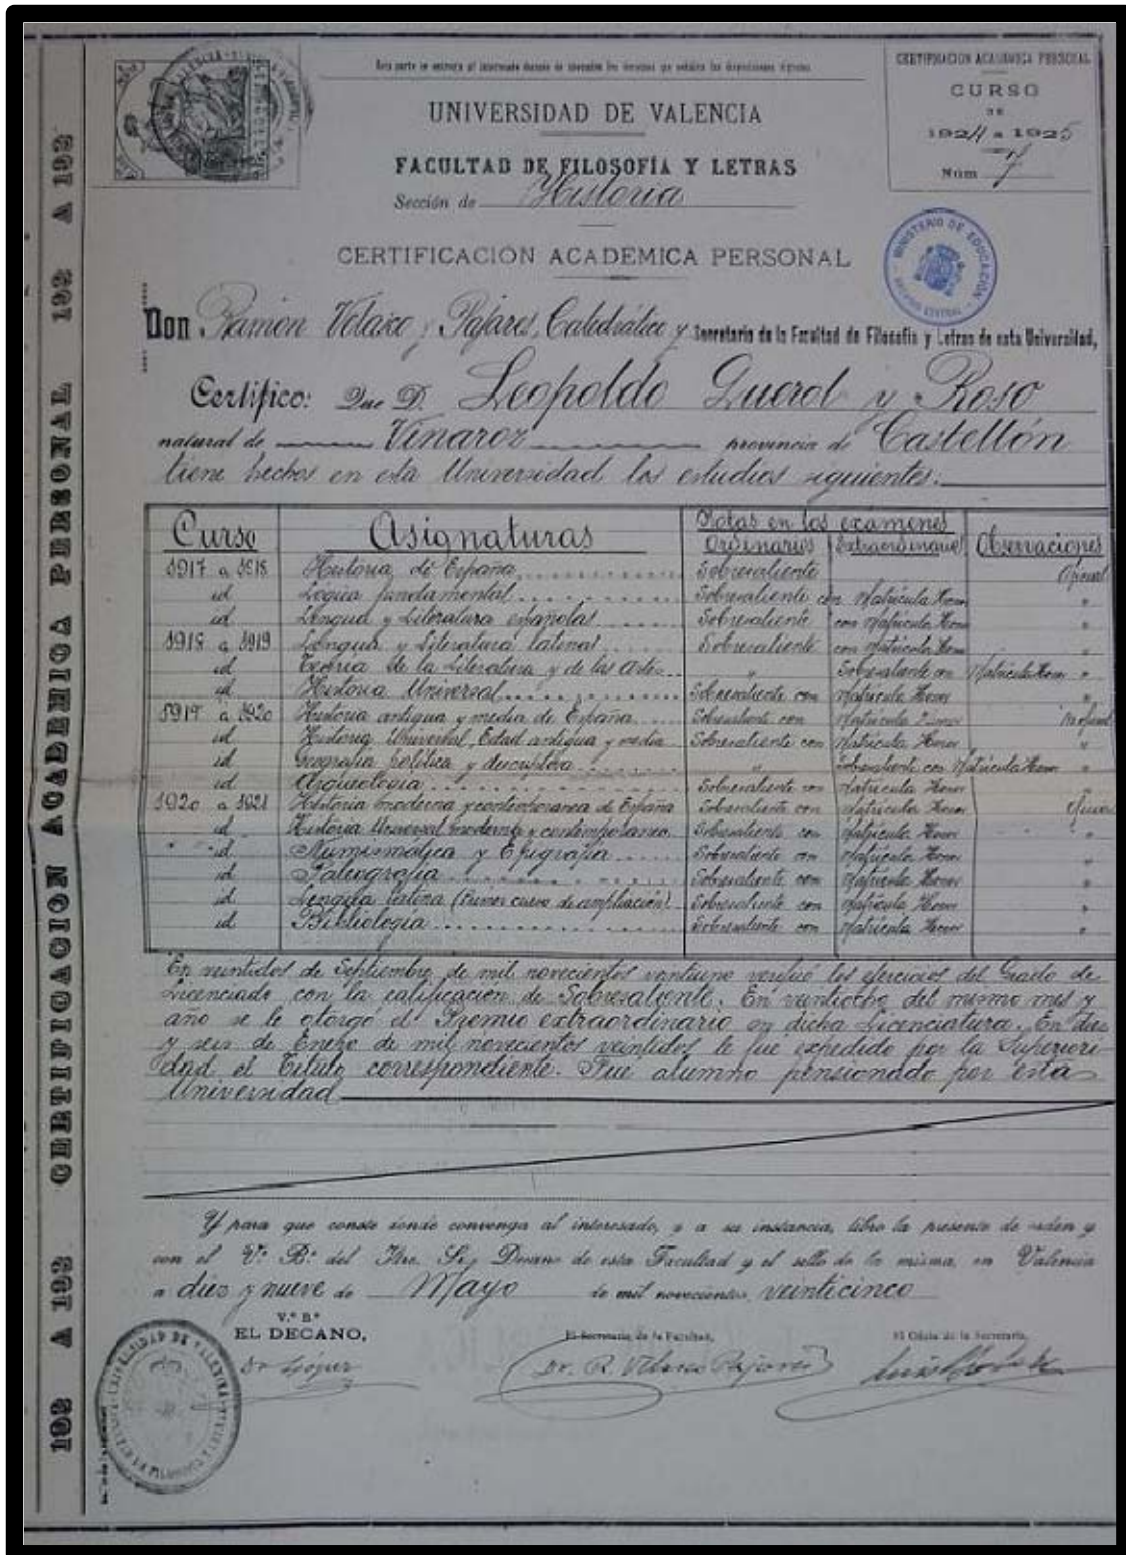 CERTIFICACION ACADEMICA PERSONAL
CURSO
DE
1924 a 1925
Núm 7
UNIVERSIDAD DE VALENCIA
FACULTAD DE FILOSOFÍA Y LETRAS
Sección de Historia
CERTIFICACION ACADEMICA PERSONAL
MINISTERIO DE EDUCACIÓN
ARCHIVO CENTRAL
Don Ramón Velasco y Pajares, Catedrático y Secretario de la Facultad de Filosofía y Letras de esta Universidad,
Certifico: Que D. Leopoldo Querol y Roso
natural de Vinaroz provincia de Castellón
tiene hechos en esta Universidad los estudios siguientes:
Curso Asignaturas Notas en los examenes Observaciones
Ordinarios Extraordinarios
1917 a 1918 Historia de España Sobresaliente Oficial
id Logica fundamental Sobresaliente con Matricula Honor "
id Lengua y Literatura españolas Sobresaliente con Matricula Honor "
1918 a 1919 Lengua y Literatura latinas Sobresaliente con Matricula Honor "
id Teoria de la Literatura y de las Artes " Sobresaliente con Matricula Honor "
id Historia Universal Sobresaliente con Matricula Honor "
1919 a 1920 Historia antigua y media de España Sobresaliente con Matricula Honor No oficial
id Historia Universal, Edad antigua y media Sobresaliente con Matricula Honor "
id Geografia politica y descriptiva " Sobresaliente con Matricula Honor "
id Arqueologia Sobresaliente con Matricula Honor "
1920 a 1921 Historia moderna y contemporanea de España Sobresaliente con Matricula Honor Oficial
id Historia Universal moderna y contemporanea Sobresaliente con Matricula Honor "
id Numismatica y Epigrafia Sobresaliente con Matricula Honor "
id Paleografia Sobresaliente con Matricula Honor "
id Lengua latina (Primer curso de ampliación) Sobresaliente con Matricula Honor "
id Bibliologia Sobresaliente con Matricula Honor "
En veintidos de Septiembre de mil novecientos veintiuno verificó los ejercicios del Grado de
Licenciado con la calificación de Sobresaliente. En veintiocho del mismo mes y
año se le otorgó el Premio extraordinario en dicha Licenciatura. En diez
y seis de Enero de mil novecientos veintidos le fué expedido por la Superiori-
dad el Titulo correspondiente. Fue alumno pensionado por esta
Universidad
Y para que conste donde convenga al interesado, y a su instancia, libro la presente de orden y
con el V.º B.º del Iltre. Sr. Decano de esta Facultad y el sello de la misma, en Valencia
a diez y nueve de Mayo de mil novecientos veinticinco
V.º B.º
EL DECANO,
El Secretario de la Facultad,
El Oficial de la Secretaría,
CERTIFICACION ACADEMICA PERSONAL
192 A 192